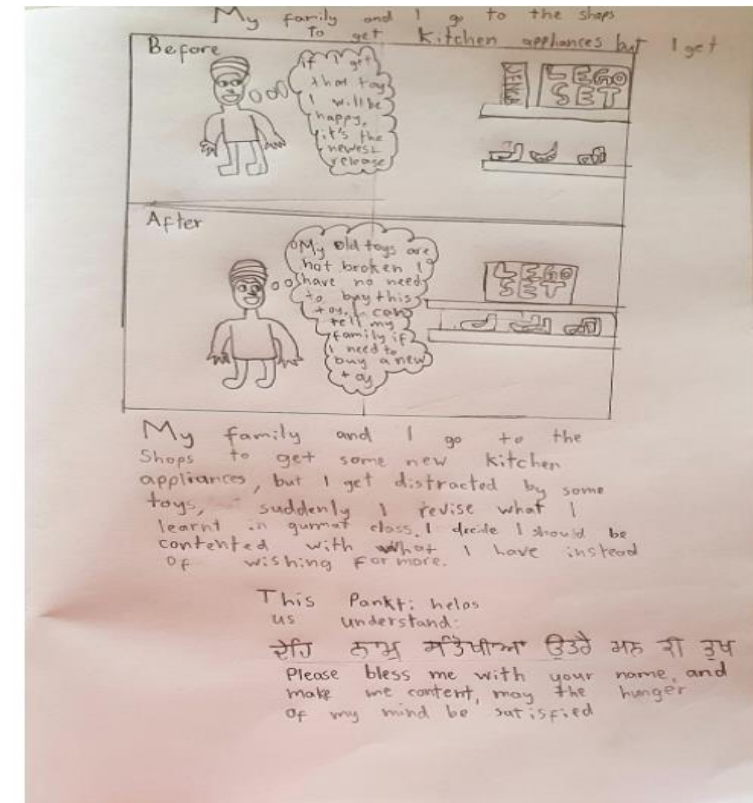 My family and I go to the shops
To get Kitchen appliances but I get
Before
if I get
that toy
I will be
happy,
it's the
newest
release
LEGO
SET
After
My old toys are
not broken I
have no need
to buy this
toy. I can
tell my
family if
I need to
buy a new
toy
LEGO
SET
My family and I go to the
Shops to get some new kitchen
appliances, but I get distracted by some
toys, suddenly I revise what I
learnt in gurmat class. I decide I should be
contented with what I have instead
of wishing for more.
This Pankti helps
us understand:
ਦੇਹਿ ਨਾਮੁ ਸੰਤੋਖੀਆ ਉਤਰੈ ਮਨ ਕੀ ਭੁਖ
Please bless me with your name, and
make me content, may the hunger
of my mind be satisfied